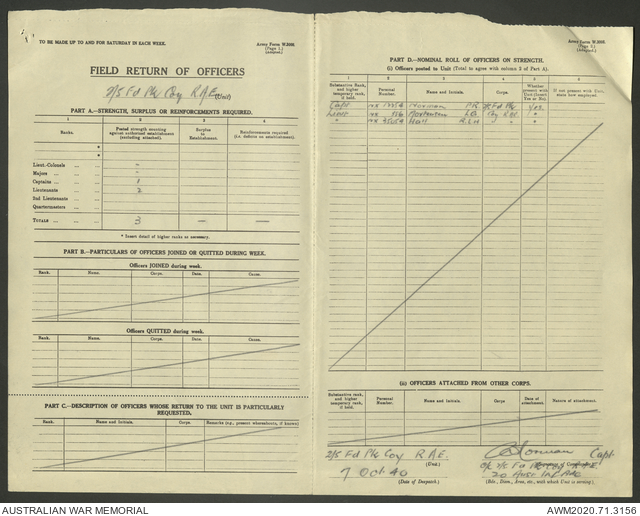 TO BE MADE UP TO AND FOR SATURDAY IN EACH WEEK.
Army Form W.3008.
(Page 1.)
(Adapted.)
FIELD RETURN OF OFFICERS
2/5 Fd Pk Coy R.A.E. (Unit)
PART A.—STRENGTH, SURPLUS OR REINFORCEMENTS REQUIRED.
1 2 3 4
Ranks. Posted strength counting against authorised establishment (excluding attached). Surplus to Establishment. Reinforcements required (i.e. deficits on establishment).
*
*
Lieut.-Colonels -
Majors -
Captains 1
Lieutenants 2
2nd Lieutenants
Quartermasters
TOTALS 3 — —
* Insert detail of higher ranks as necessary.
PART B.—PARTICULARS OF OFFICERS JOINED OR QUITTED DURING WEEK.
Officers JOINED during week.
Rank. Name. Corps. Date. Cause.
Officers QUITTED during week.
Rank. Name. Corps. Date. Cause.
PART C.—DESCRIPTION OF OFFICERS WHOSE RETURN TO THE UNIT IS PARTICULARLY REQUESTED.
Rank. Name and Initials. Corps. Remarks (e.g., present whereabouts, if known)
(Page 2.)
(Adapted.)
PART D.—NOMINAL ROLL OF OFFICERS ON STRENGTH.
(i) Officers posted to Unit (Total to agree with column 2 of Part A).
1 2 3 4 5 6
Substantive Rank, and higher temporary rank, if held. Personal Number. Name and Initials. Corps. Whether present with Unit (Insert Yes or No) If not present with Unit, state how employed.
Capt Norman P.R. Fd Pk Yes
Lieut Coy RAE "
" Hall R.L.H " "
(ii) OFFICERS ATTACHED FROM OTHER CORPS.
Substantive Rank, and higher temporary rank, if held. Personal Number. Name and Initials. Corps Date of attachment. Nature of attachment.
2/5 Fd Pk Coy R.A.E. (Unit) Norman Capt.
O/c 2/5 Fd Pk Coy RAE
7 Oct 40
(Date of Despatch) (Bde., Divn., Area, etc., with which Unit is serving)
AUSTRALIAN WAR MEMORIAL
AWM2020.71.3156